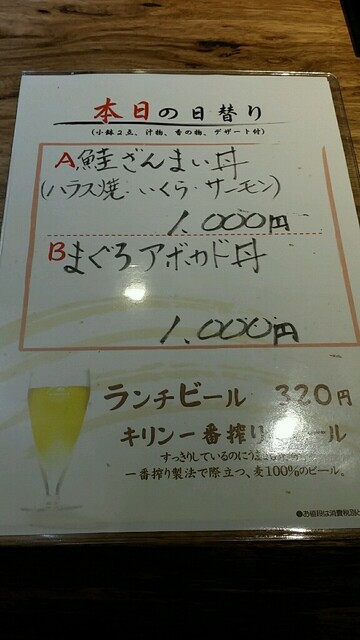 本日の日替り
(小鉢2点、汁物、香の物、デザート付)
A鮭ざんまい丼
(ハラス焼・いくら・サーモン)
1,000円
Bまぐろアボカド丼
1,000円
ランチビール 320円
キリン一番搾り ール
すっきりしているのにうま
一番搾り製法で際立つ、麦100%のビール。
●お値段は消費税別と